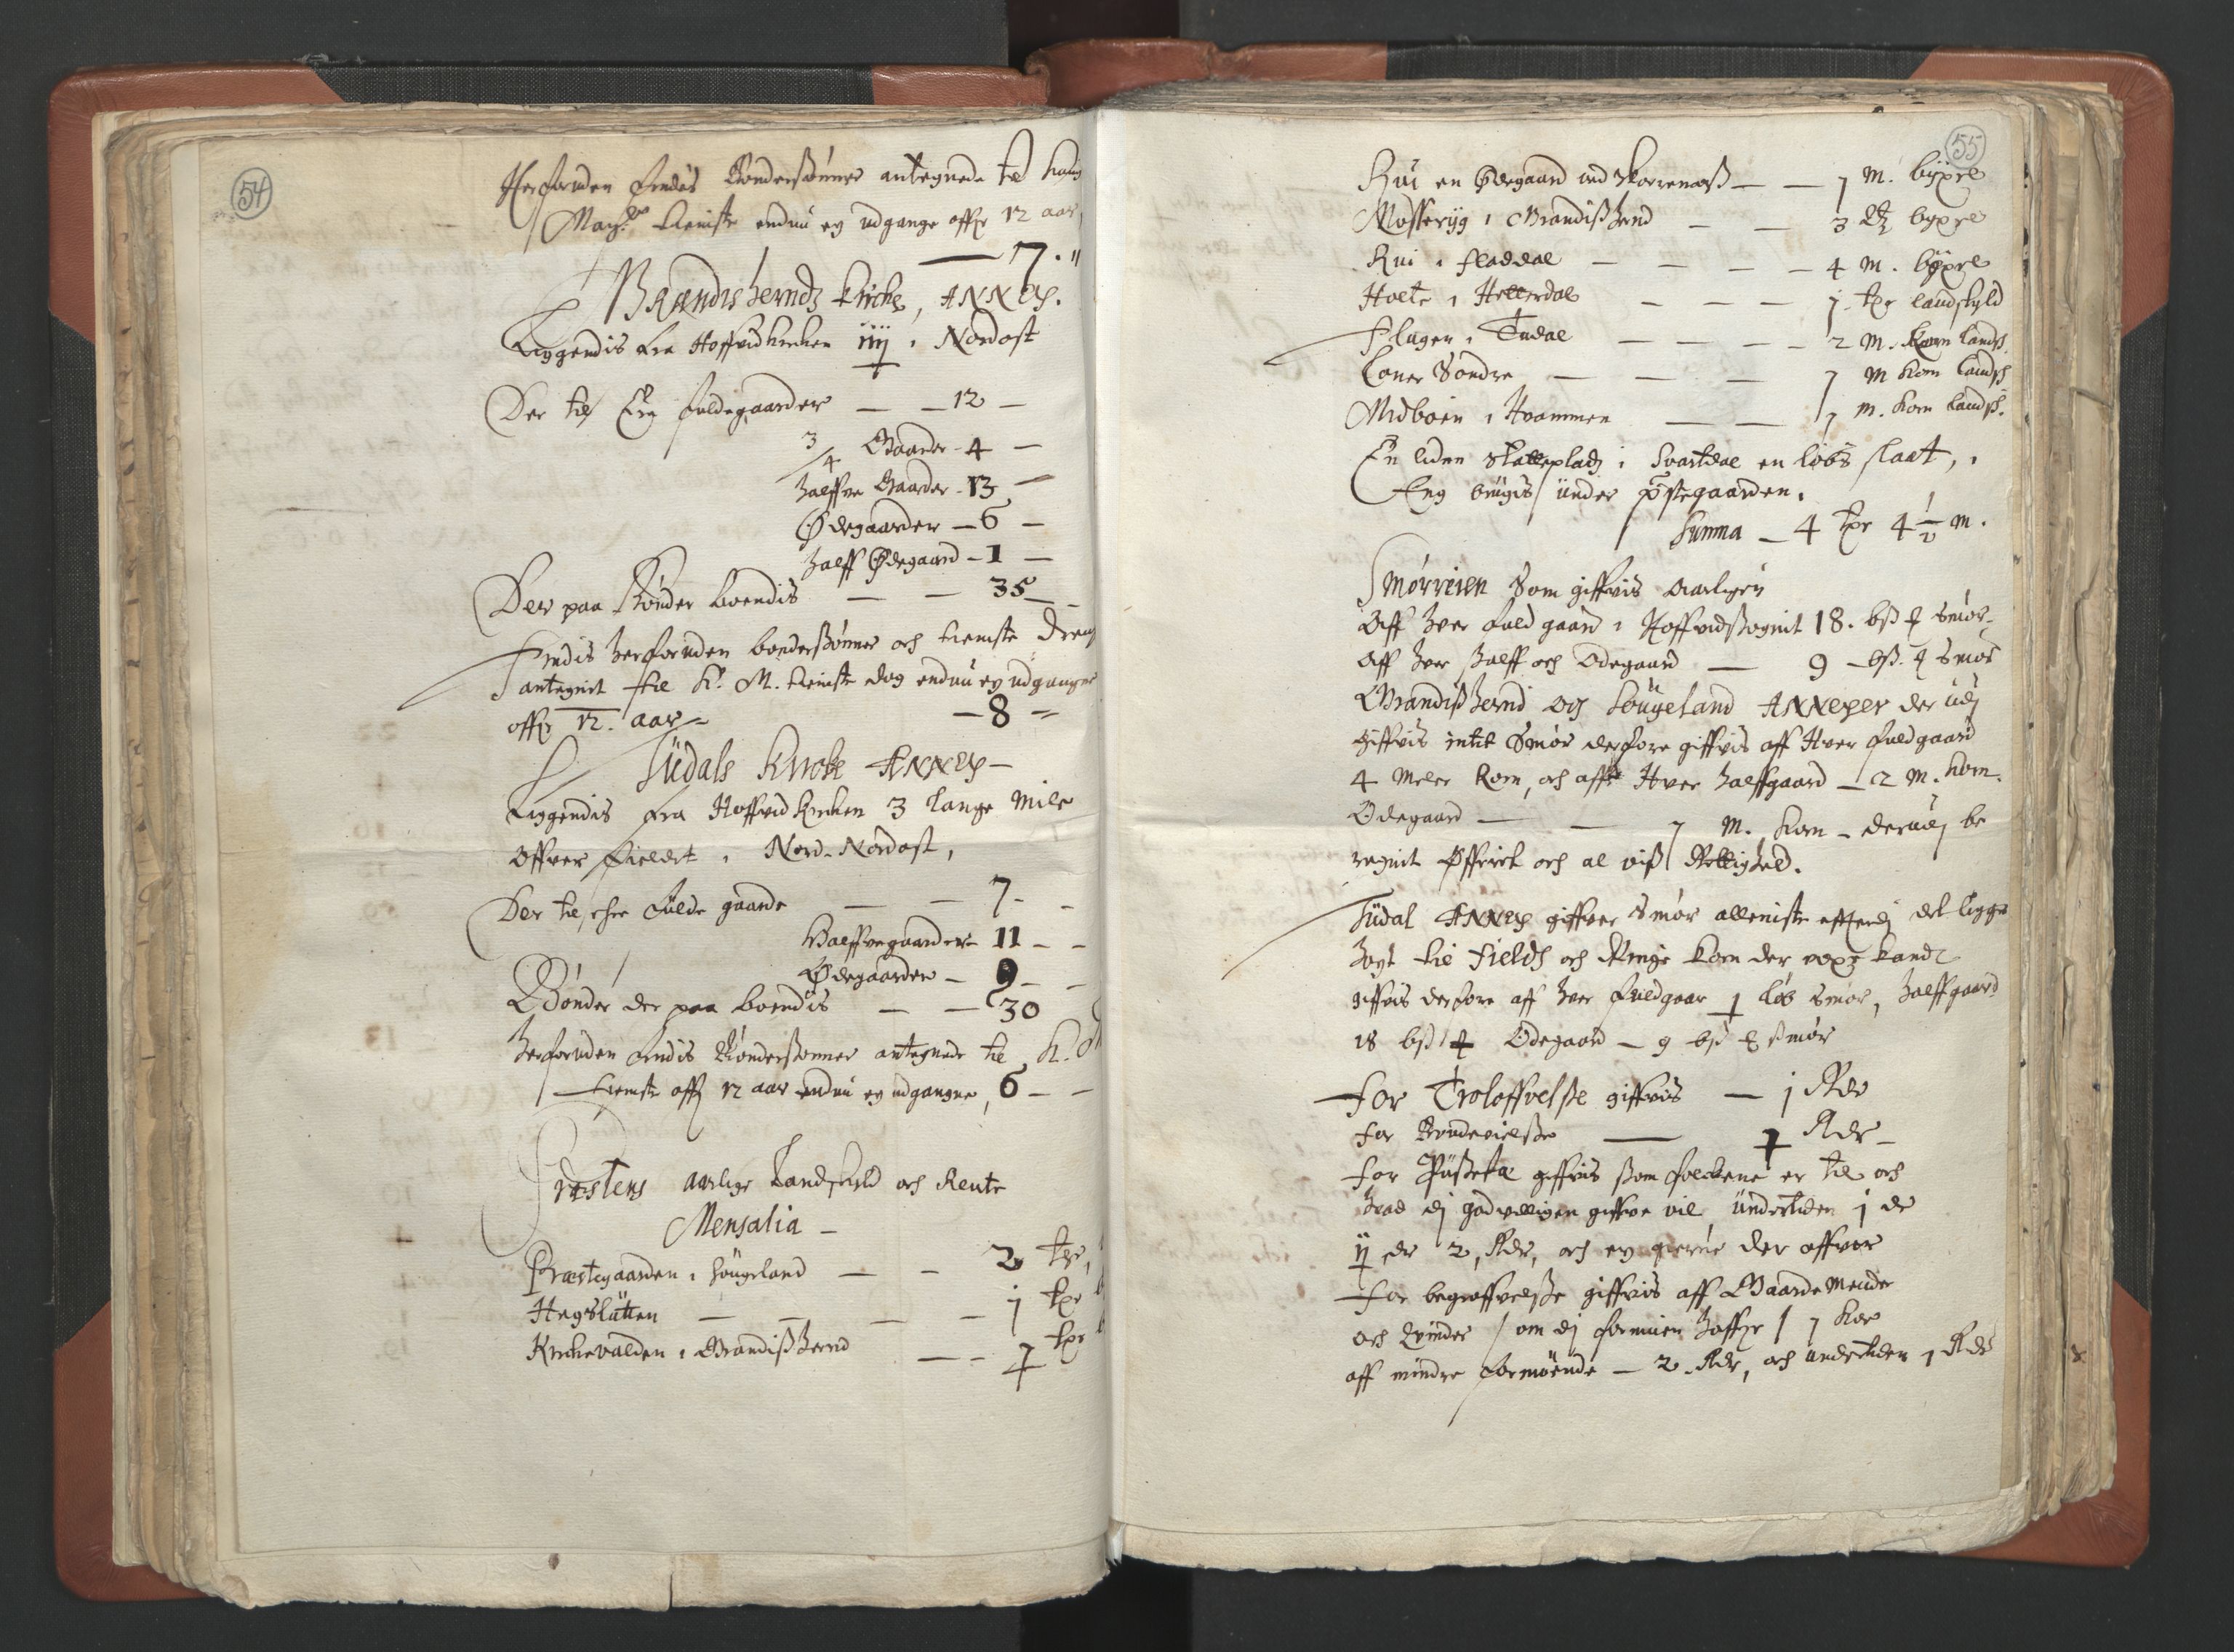 54
Herforuden findes Bønderssønner antegnede til Kong
May:ts tieniste endnu ey udgangne offr 12 aar,
— 7. "
Brandisherndz Kircke, ANNEX.
Liggendis fra Hoffvidkircken iiij i Nordost
Der til Ere fuldegaarder — — 12 —
3/4 Gaarder - 4 —
halffve Gaarder - 13 —
Ødegaarder — 6 —
halff Ødegaard - 1 —
Der paa Bønder boendis — — 35 —
Findis herforuden bønderssønner och tieniste dreng
antegnit til K. M. tieniste dog endnu ey udgangne
offr 12. aar — 8 —
Siidals Kircke ANNEX —
Liggendis fra Hoffvid Kircken 3 lange Mile
offver fieldet i Nord-Nordost,
Der til ere fulde gaarde — — 7 - -
Halffvegaarder - 11 - -
Ødegaarder — 9 - -
Bønder der paa boendis — — 30
herforuden findis Bønderssønner antegnede til K. M
tieniste offr 12 aar endnu ey udgangne, 6 - -
Præstens aarlige Landskyld och Rente
Mensalia —
Præstegaarden i Høugeland — — 2 tpr,
Hegslätten — — — — 1 tpr
Kirckevolden i Grandisshernd — — 1 tpr
55
Rui en Ødegaard ved — — 1 m. byxel
Mosserüg i Grandisshernd — — 3 byxel
Rui i fladdal — — — — 4 m. byxel
Holte i Hellerdal — — — 1 tpr landskyld
Flager i Tudal — — — — 2 m. Korn landsk.
Loner Søndre — — — 1 m Korn landsk
Midbøen i Hvammen — — 1 m. Korn landsk.
En liden Slotteplads i Svartdal en løbs slaat, i
Eng brugis under pstegaarden.
Summa — 4 tpr 4 1/2 m.
Smørreien Som giffvis Aarligen
Aff hver fuld gaard i Hoffvidssognit 18. bss smør-
Aff hver halff och Ødegaard — 9 — bss. Smør
Grandisshernd og Høugeland ANNexer der udj
giffvis intet Smør derfore giffvis aff Hver fuldgaard
4 meler Korn, och aff Hver halffgaard — 2 m. Korn.
Ødegaard — — 1 m. Korn - derudj be
regnit Offerit och al viss Rettighed.
Siidal ANNEX giffver Smør alleniste efftterdj det ligge
høyt til fields och Ringe korn der voxe kand
giffvis derfore aff hver fuldgaar 1 løb smør, halffgaard
18 bss Ødegaard — 9 bss smør
For Troloffvelsse giffvis — 1 Rdr
for Brudevielsse — 1 Rdr —
for giffvis ssom folckene er til och
hvad dj godvilligen giffve vil, Undertiden j dr
ij dr 2, Rdr, och ey gierne der offver
For begraffvelsse giffvis aff Gaarde Mende
och Qvinder / om dj formuen haffr / 1 Koe
aff mindre formuende — 2. Rdr, och undertiden 1 Rdr